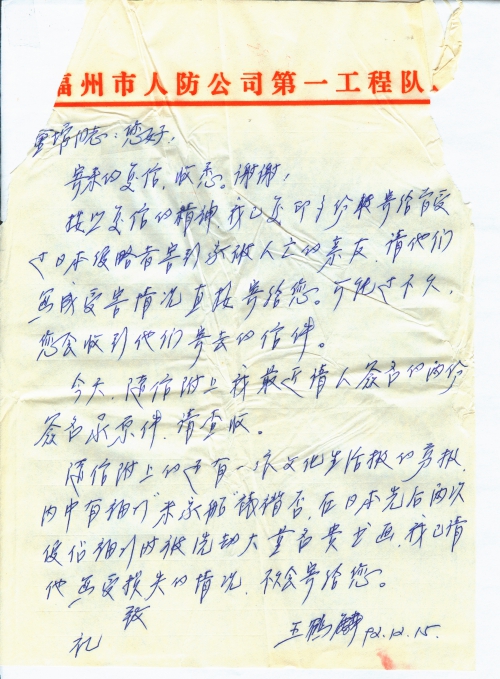 福州市人防公司第一工程队
同志：您好！
寄来的复信，收悉。谢谢！
按照复信的精神，我已复印多份 寄给曾受
过日本侵略者害到 人亡的亲友，请他们
写成受害情况直接寄给您。可能过不久，
您会收到他们寄去的信件。
今天，随信附上我最近请人签名的两份
签名录原件，请查收。
随信附上的还有一张文化生活报的剪报，
内中有 在日本先后两次
侵占 时被洗劫大量名贵书画，我已请
他写受损失的情况，不会寄给您。
致
礼
王鹤 92.12.15.